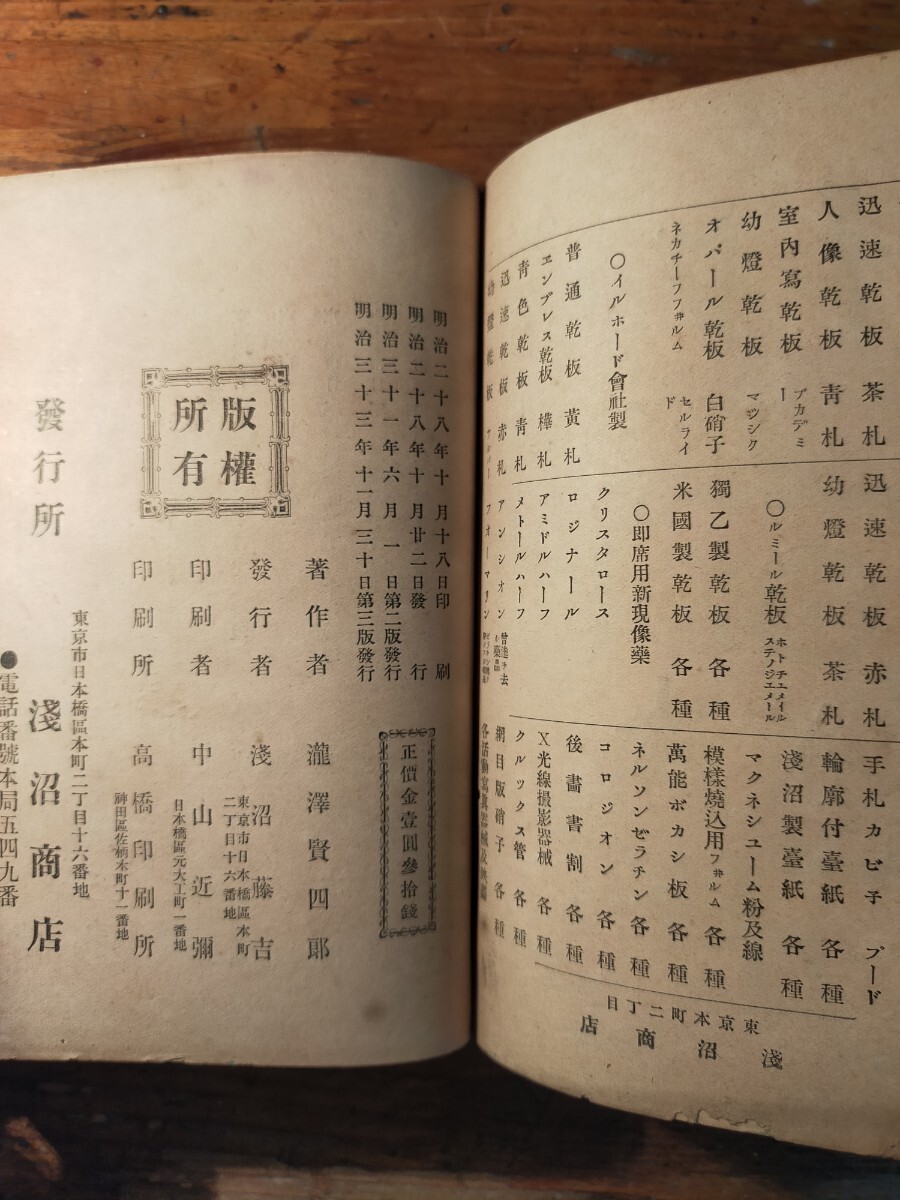 迅速乾板 茶札
人像乾板 青札
室內寫乾板 アカデミー
幼燈乾板 マツシク
オパール乾板 白硝子
ネカチーフフヰルム セルライド
〇イルホード會社製
普通乾板 黃札
エンプレス乾板 樺札
青色乾板 青札
迅速乾板 赤札
幼燈乾板
迅速乾板 赤札
幼燈乾板 茶札
〇ルミール乾板 ホトチユメイル ステノジエメール
獨乙製乾板 各種
米國製乾板 各種
〇即席用新現像藥
クリスタロース
ロジナール
アミドルハーフ
メトールハーフ
アンシオン
フオーマリン
手札カビ子 プード
輪廓付臺紙 各種
淺沼製臺紙 各種
マクネシユーム粉及線
模樣燒込用フヰルム 各種
萬能ボカシ板 各種
ネルソンゼラチン 各種
コロジオン 各種
後畵書割 各種
X光線撮影器械 各種
クルックス管 各種
網目版硝子 各種
東京本町二丁目
淺沼商店
明治二十八年十月十八日印刷
明治二十八年十月廿二日發行
明治三十一年六月一日第二版發行
明治三十三年十一月三十日第三版發行
正價金壹圓參拾錢
版權
所有
著作者 瀧澤賢四郎
發行者 淺沼藤吉
東京市日本橋區本町
二丁目十六番地
印刷者 中山近彌
日本橋區元大工町一番地
印刷所 高橋印刷所
神田區佐柄木町十二番地
東京市日本橋區本町二丁目十六番地
發行所 淺沼商店
●電話番號本局五四九番